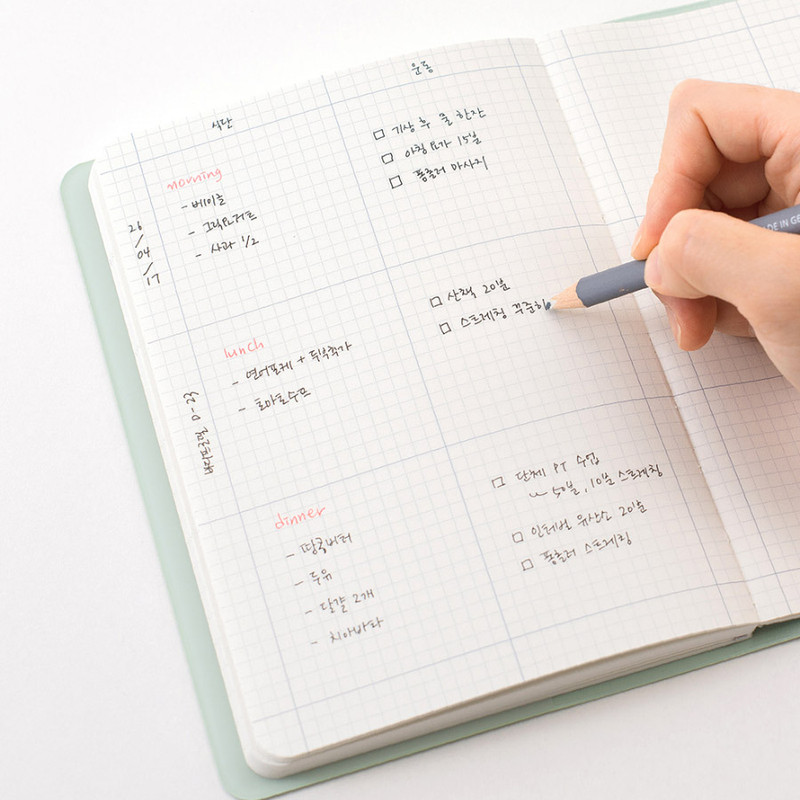 식단
운동
26
/
04
/
17
D-23
morning
- 베이글
- 그릭요거트
- 사과 1/2
□ 기상 후 물 한잔
□ 아침 요가 15분
□ 폼롤러 마사지
lunch
- 연어포케 + 두부추가
- 토마토수프
□ 산책 20분
□ 스트레칭 꾸준히
dinner
- 땅콩버터
- 두유
- 달걀 2개
- 치아바타
□ 단체 PT 수업
50분, 10분 스트레칭
□ 인터벌 유산소 20분
□ 폼롤러 스트레칭
ADE IN GE